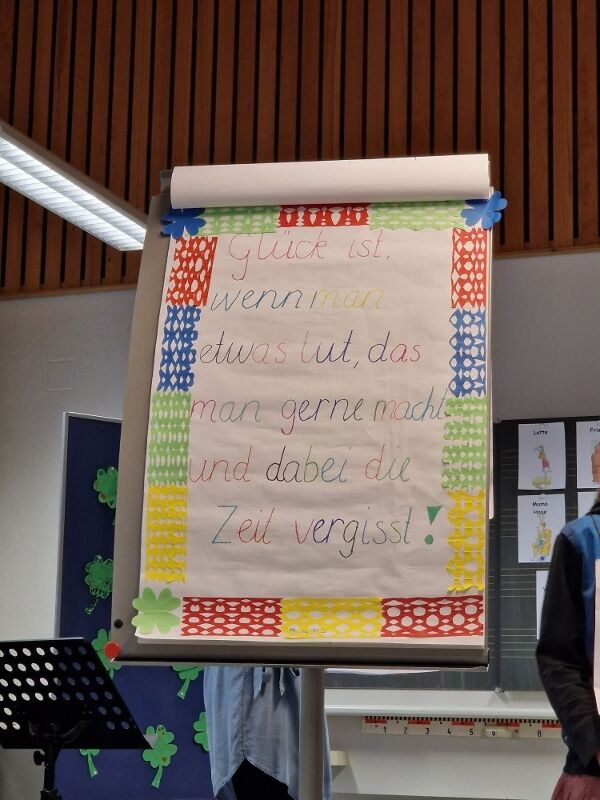 Glück ist,
wenn man
etwas tut, das
man gerne macht
und dabei die
Zeit vergisst!
Lotte
Mama
Hase
1 2 3 4 5 6 7 8